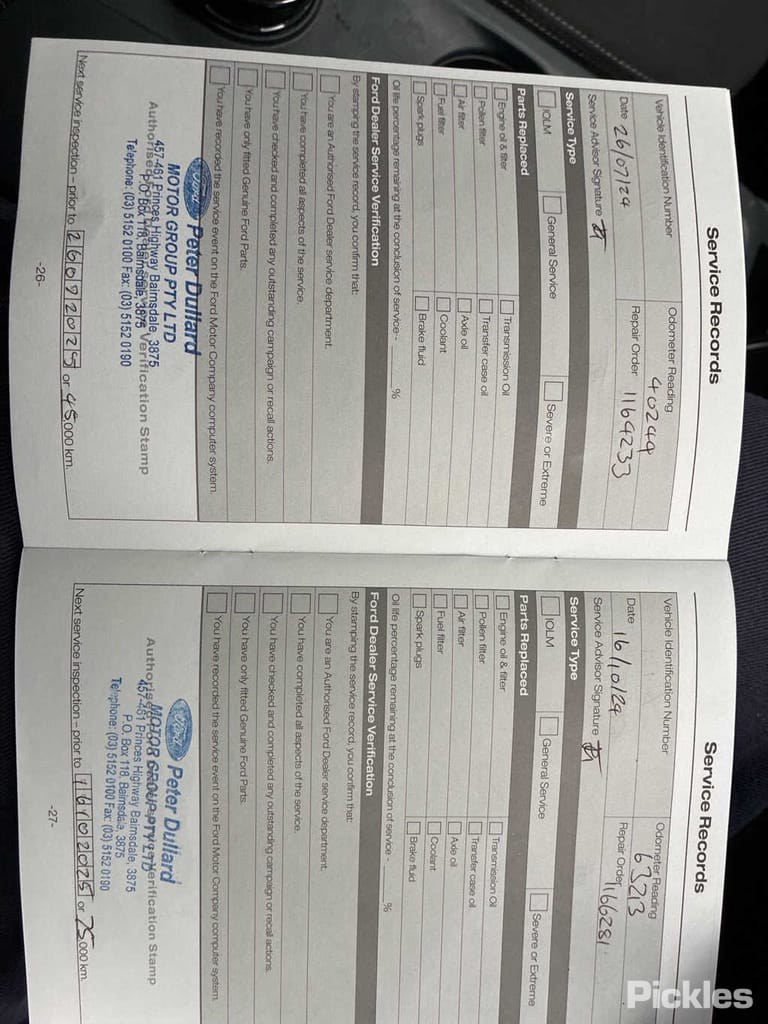 Service Records
Vehicle Identification Number
Odometer Reading
40249
Date 26/07/24
Repair Order 1164233
Service Advisor Signature
Service Type
IOLM
General Service
Severe or Extreme
Parts Replaced
Engine oil & filter
Transmission Oil
Pollen filter
Transfer case oil
Air filter
Axle oil
Fuel filter
Coolant
Spark plugs
Brake fluid
Oil life percentage remaining at the conclusion of service - %
Ford Dealer Service Verification
By stamping the service record, you confirm that:
You are an Authorised Ford Dealer service department.
You have completed all aspects of the service.
You have checked and completed any outstanding campaign or recall actions.
You have only fitted Genuine Ford Parts.
You have recorded the service event on the Ford Motor Company computer system.
Ford Peter Dullard
MOTOR GROUP PTY LTD
457-461 Princes Highway Bairnsdale, 3875
Authorised Verification Stamp
P.O. Box 118, Bairnsdale, 3875
Telephone: (03) 5152 0100 Fax: (03) 5152 0190
Next service inspection – prior to 26072025 or 45,000 km.
-26-
Service Records
Vehicle Identification Number
Odometer Reading
63213
Date 16/10/24
Repair Order 1166281
Service Advisor Signature
Service Type
IOLM
General Service
Severe or Extreme
Parts Replaced
Engine oil & filter
Transmission Oil
Pollen filter
Transfer case oil
Air filter
Axle oil
Fuel filter
Coolant
Spark plugs
Brake fluid
Oil life percentage remaining at the conclusion of service - %
Ford Dealer Service Verification
By stamping the service record, you confirm that:
You are an Authorised Ford Dealer service department.
You have completed all aspects of the service.
You have checked and completed any outstanding campaign or recall actions.
You have only fitted Genuine Ford Parts.
You have recorded the service event on the Ford Motor Company computer system.
Ford Peter Dullard
MOTOR GROUP PTY LTD
Authorised Verification Stamp
457-461 Princes Highway Bairnsdale, 3875
P.O. Box 118, Bairnsdale, 3875
Telephone: (03) 5152 0100 Fax: (03) 5152 0190
Next service inspection – prior to 16102025 or 75,000 km.
-27-
Pickles